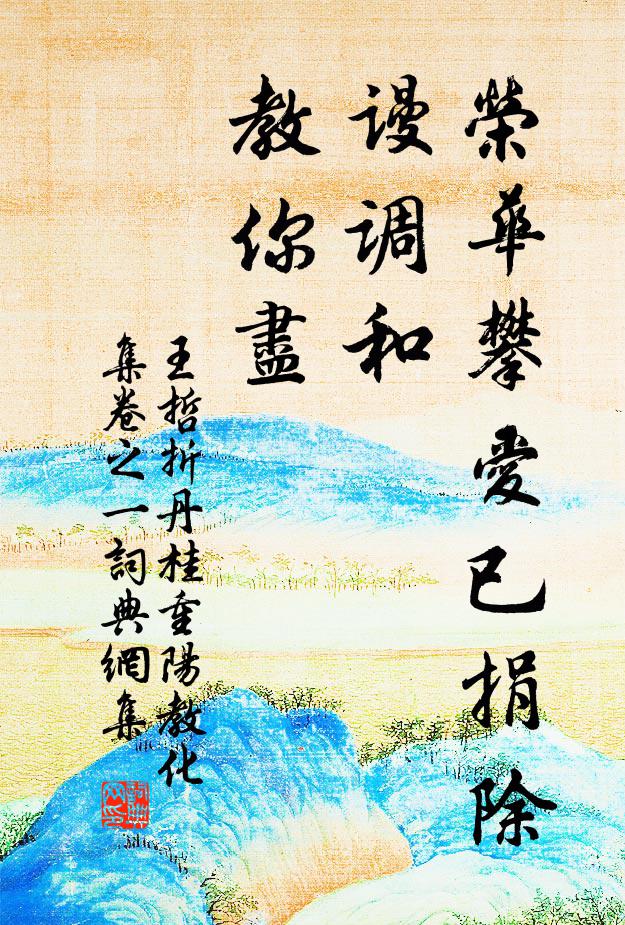 榮華攀愛已捐除
謾调和
教你盡
王哲折丹桂重陽教化
集卷之一詞典網集